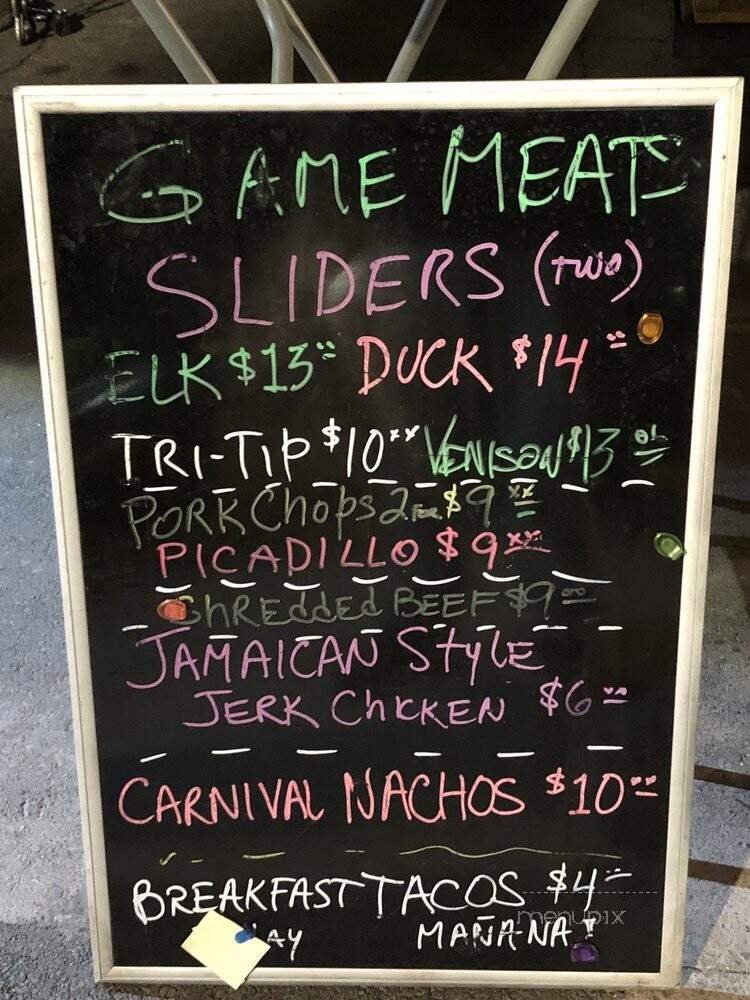 GAME MEATS
SLIDERS (TWO)
ELK $13 DUCK $14
TRI-TIP $10xx VENISON $13
PORK Chops 2 FOR $9xx
PICADILLO $9xx
ShREDDED BEEF $9
JAMAICAN StyLE
JERK ChICKEN $6
CARNIVAL NACHOS $10xx
BREAKFAST TACOS $4
MAÑANA!
menupix